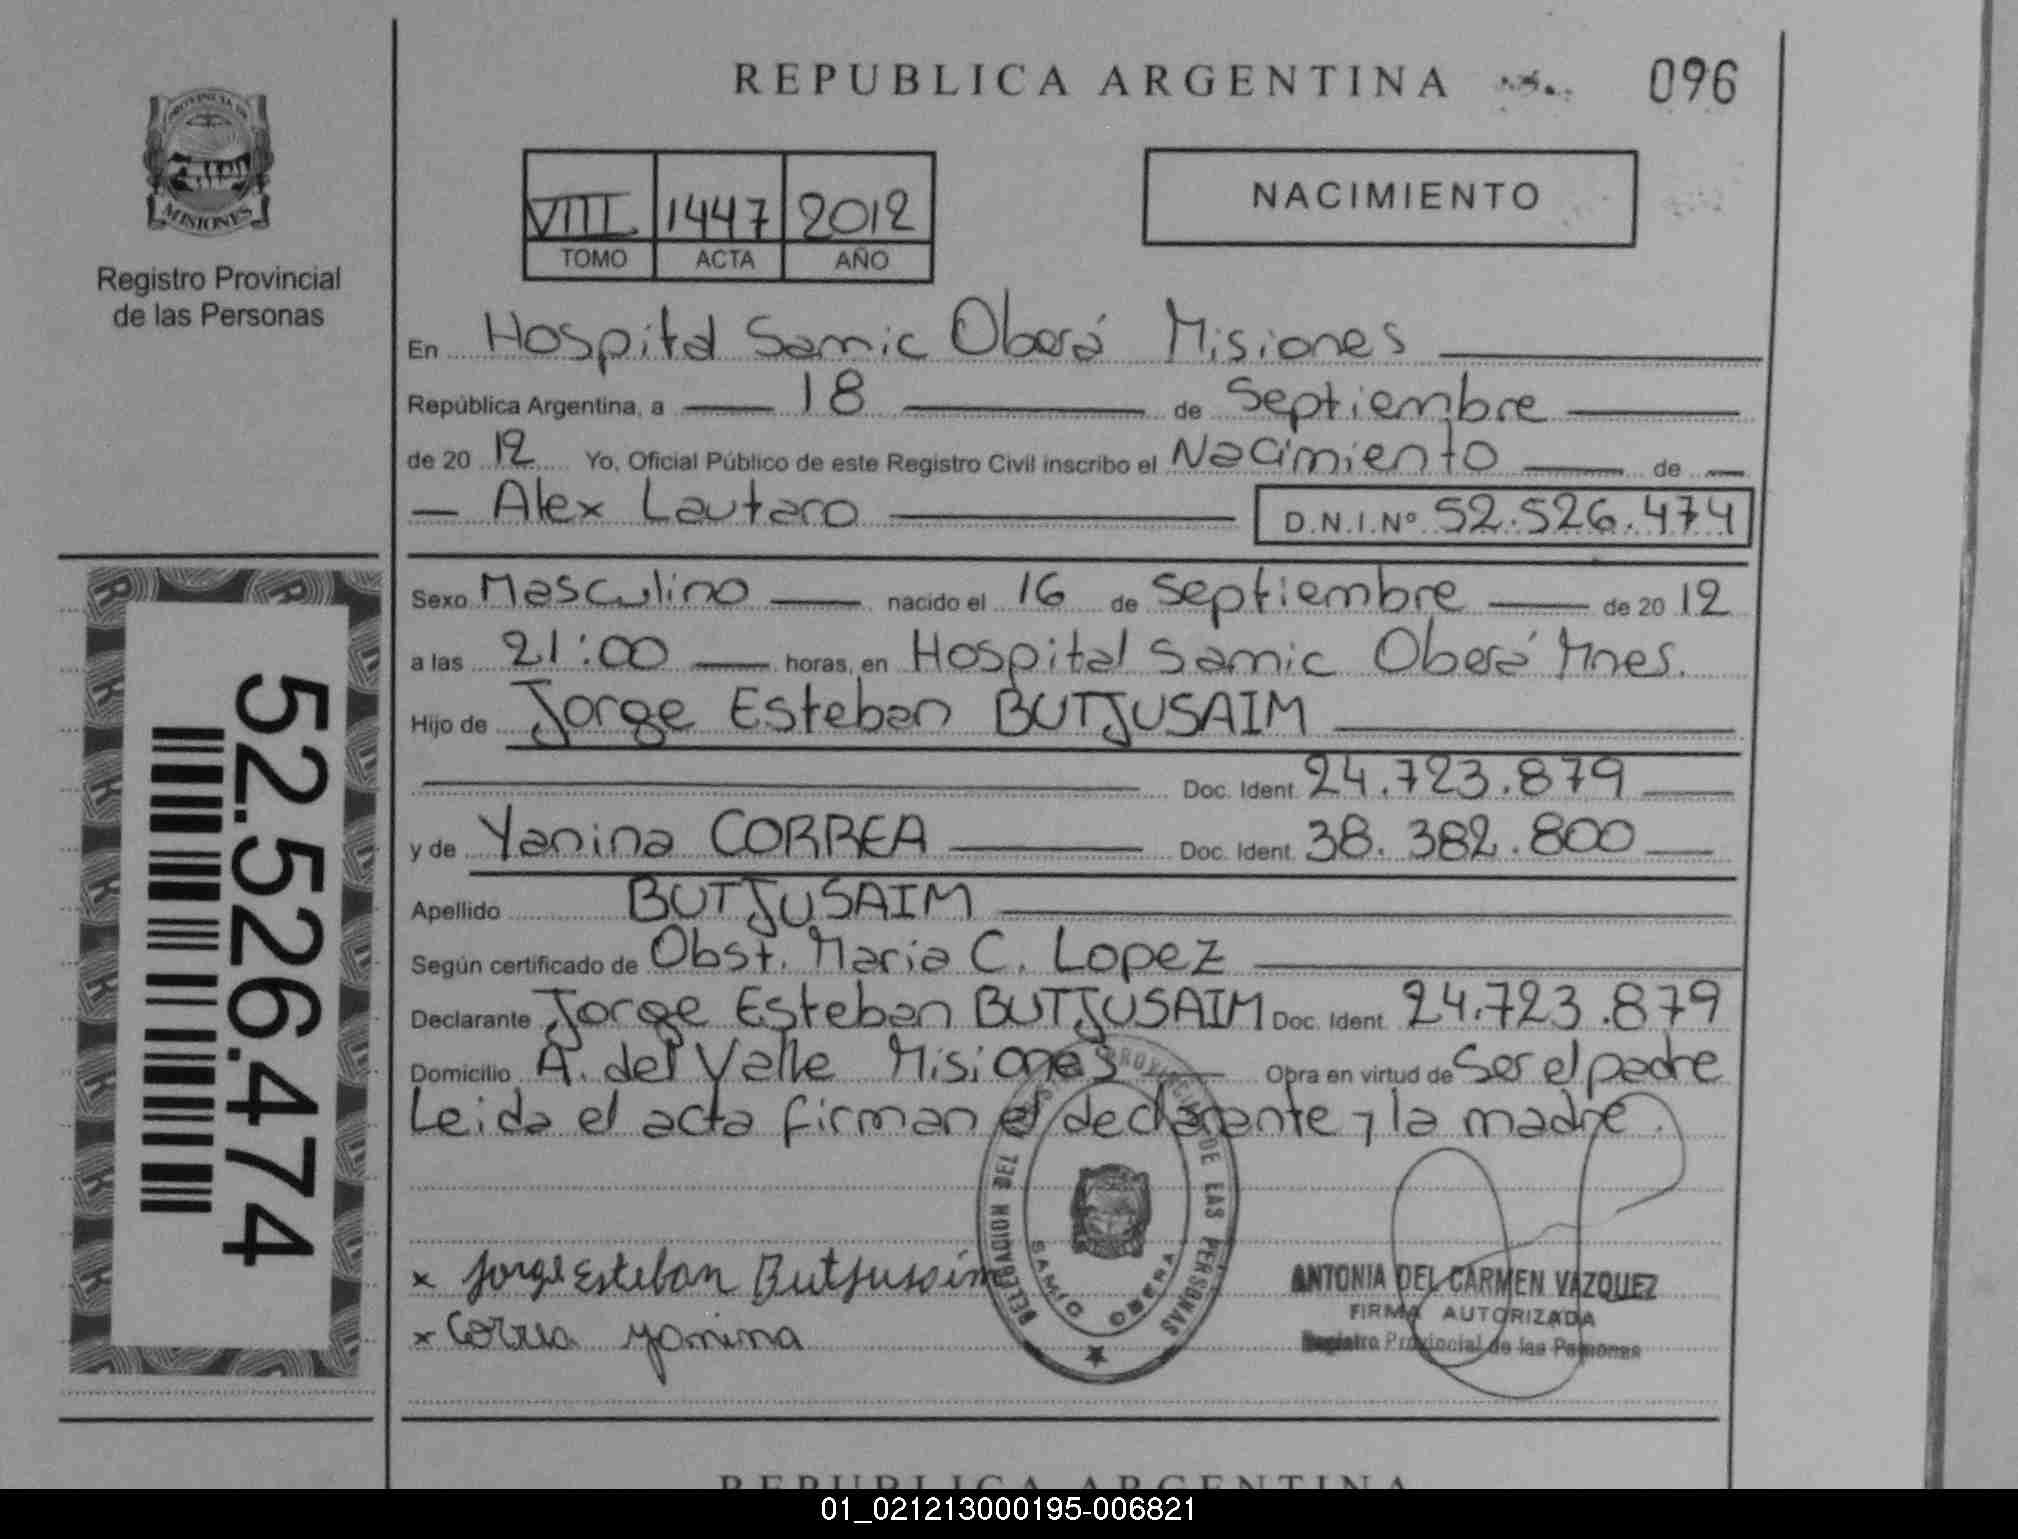 REPUBLICA ARGENTINA
096
PROVINCIA DE
MISIONES
Registro Provincial
de las Personas
VIII 1447 2012
TOMO ACTA AÑO
NACIMIENTO
En Hospital Samic Oberá Misiones
República Argentina, a 18 de Septiembre
de 20 12 Yo, Oficial Público de este Registro Civil inscribo el Nacimiento de
Alex Lautaro D.N.I.Nº 52.526.474
Sexo Masculino nacido el 16 de Septiembre de 20 12
a las 21:00 horas, en Hospital Samic Oberá Mnes.
Hijo de Jorge Esteban BUTJUSAIM
Doc. Ident. 24.723.879
y de Yanina CORREA Doc. Ident. 38.382.800
Apellido BUTJUSAIM
Según certificado de Obst. Maria C. Lopez
Declarante Jorge Esteban BUTJUSAIM Doc. Ident. 24.723.879
Domicilio A. del Valle Misiones Obra en virtud de Ser el padre
Leida el acta firman el declarante y la madre.
52.526.474
DELEGACION DEL REGISTRO PROVINCIAL DE LAS PERSONAS
SAMIC OBERA
x Jorge Esteban Butjusaim
x Correa yanina
ANTONIA DEL CARMEN VAZQUEZ
FIRMA AUTORIZADA
Registro Provincial de las Personas
REPUBLICA ARGENTINA
01_021213000195-006821